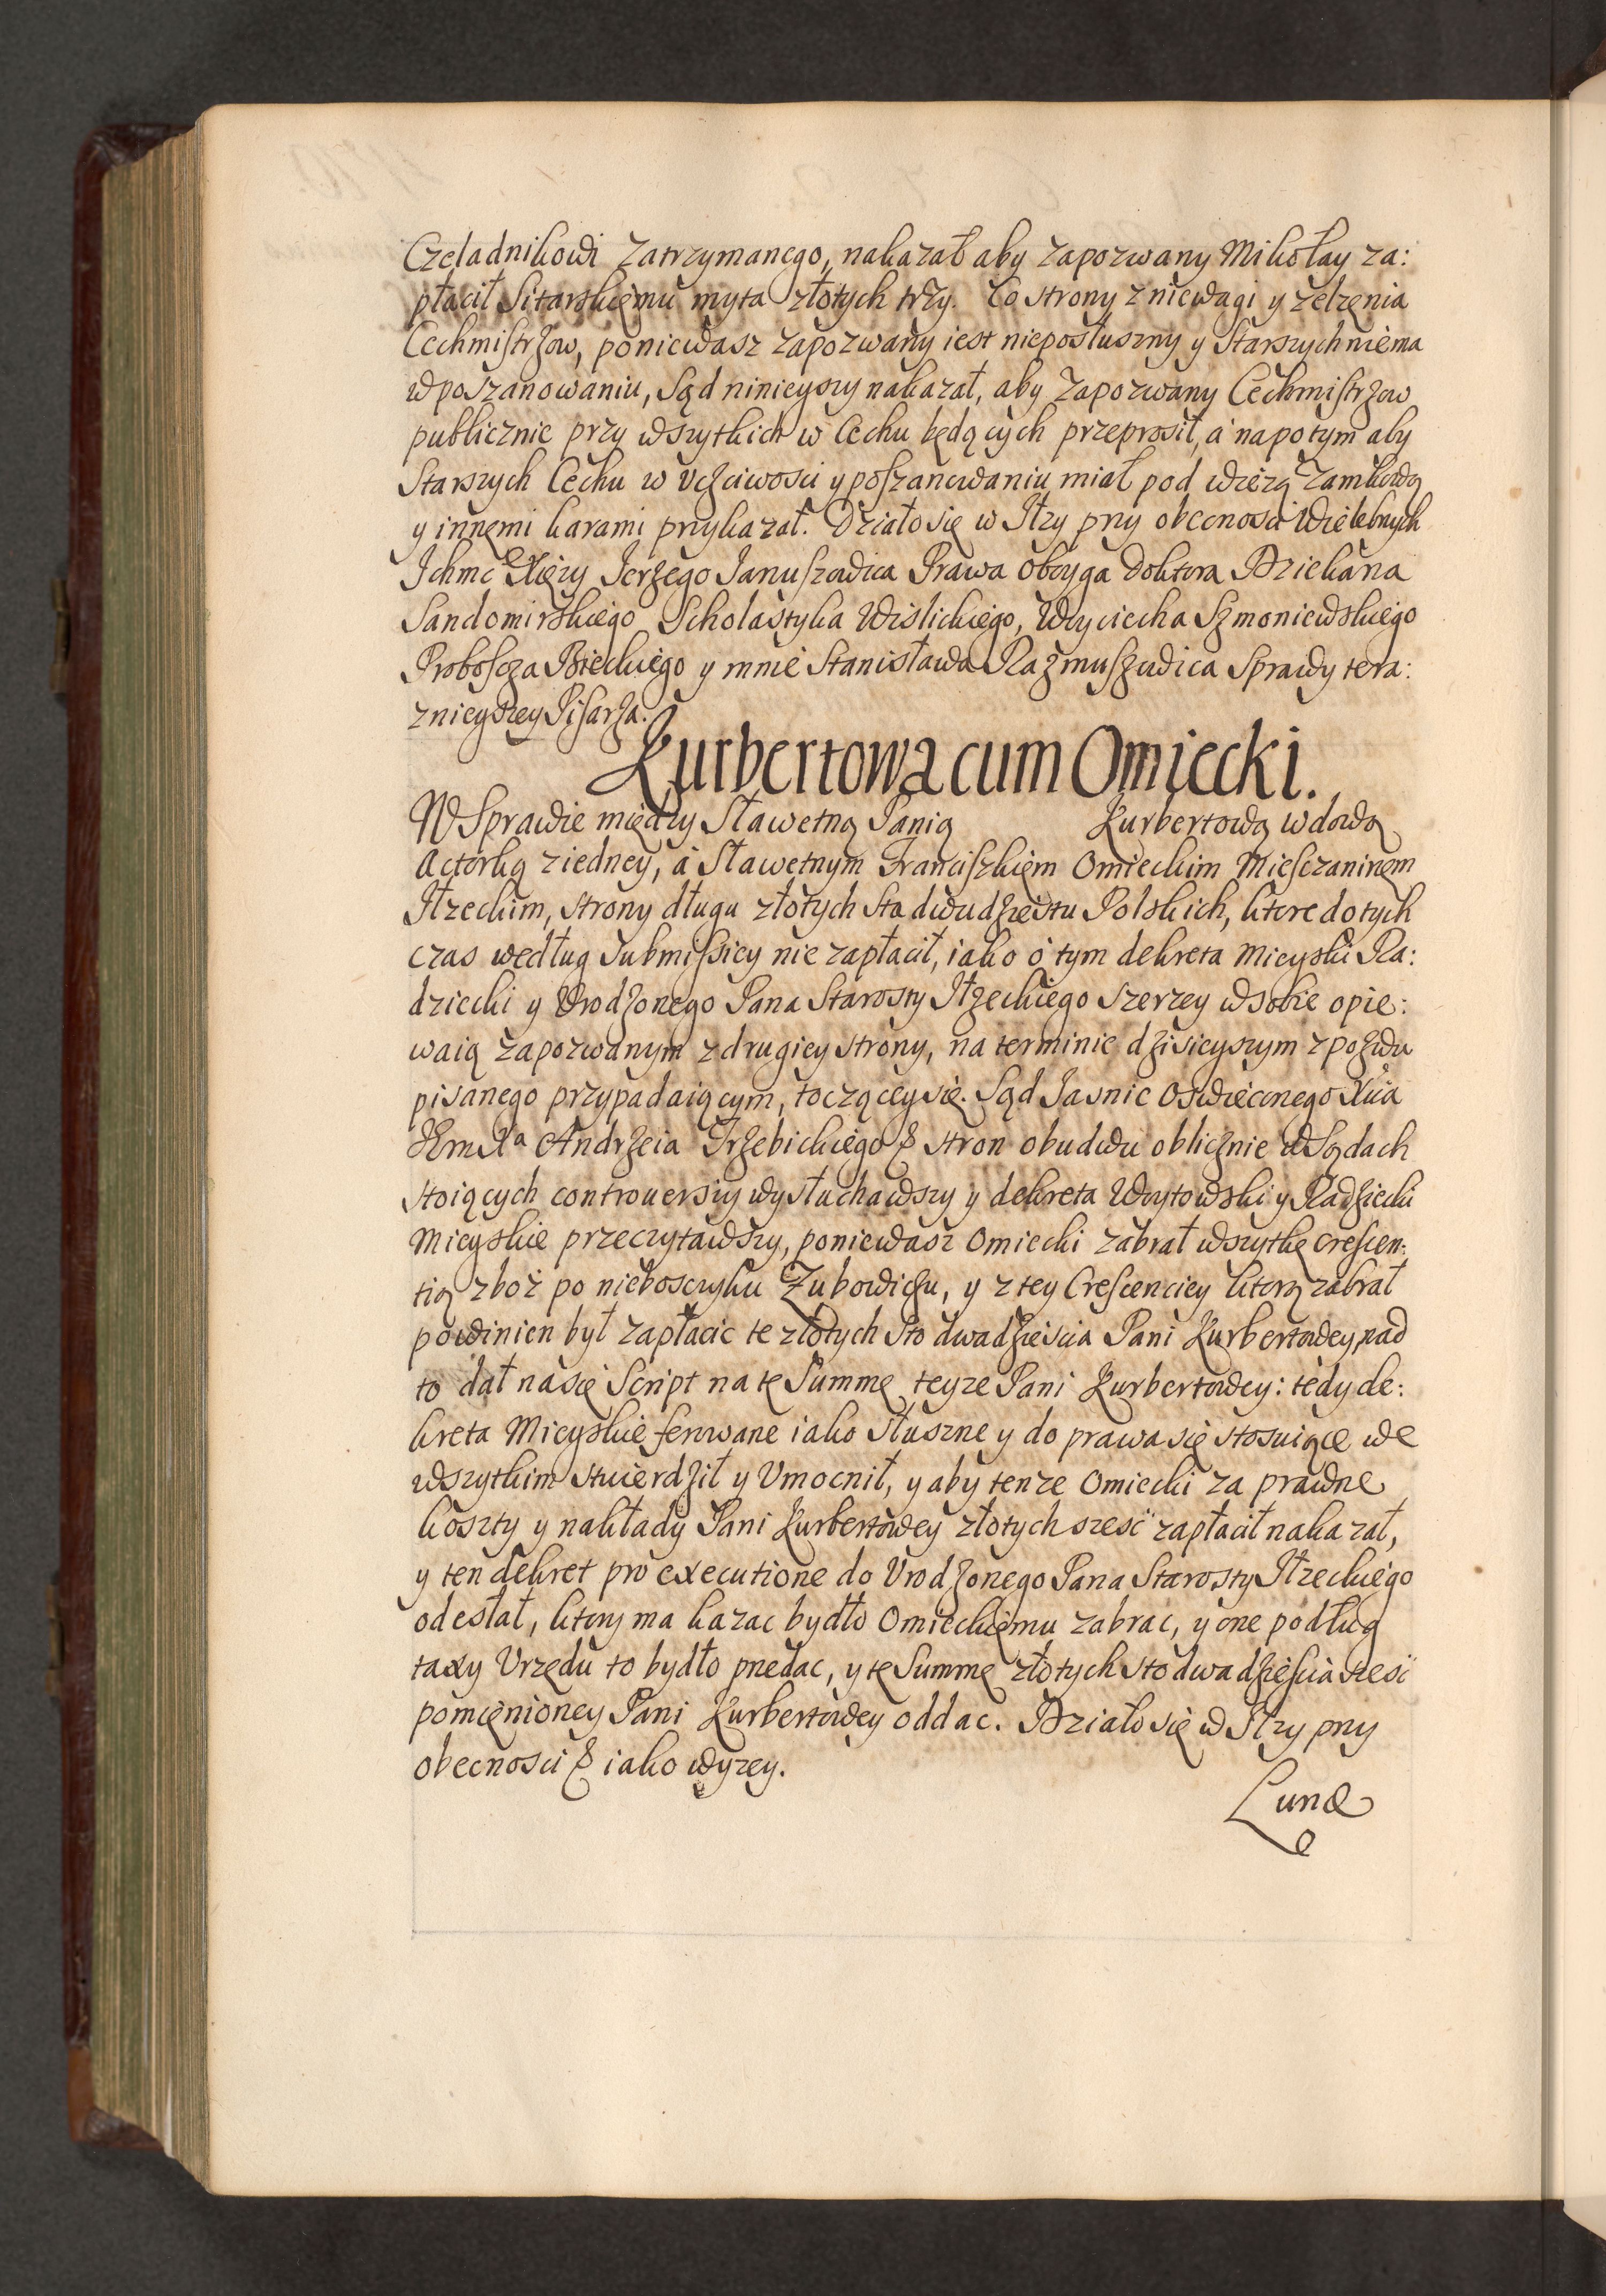 Czeladnikowi zatrzymanego, nakazał aby zapozwany Mikołay za:
płacił Sitarskiemu myta złotych trzy. Co strony zniewagi y zelzenia
Cechmistrzow, poniewasz zapozwany iest nieposłuszny y Starszych niema
w poszanowaniu, Sąd ninieyszy nakazał, aby zapozwany Cechmistrzow
publicznie przy wszytkich w Cechu będących przeprosił, a napotym aby
Starszych Cechu w Vczciwosci y poszanowaniu miał pod wieżą Zamkową
y innemi karami przykazał. Działo się w Iłzy przy obecnosci Wielebnych
Ichmć Xięży Ierzego Ianuszowica Prawa oboyga Doktora Dziekana
Sandomirskiego Scholastyka Wislickiego, Woyciecha Szmoniewskiego
Proboscza Bieckiego y mnie Stanisława Razmuszowica Sprawy tera:
znieyszey Pisarza.
Kurbertowa cum Omiecki.
W Sprawie między Sławetną Panią Kurbertową wdową
Actorką ziedney, a Sławetnym Franciszkiem Omieckim Miesczaninem
Iłzeckim, strony długu złotych sta dwudziestu Polskich, ktore dotych
czas według Submissiey nie zapłacił, iako o tym dekreta Mieyski Ra:
dziecki y Vrodzonego Pana Starosty Iłzeckiego szerzey w sobie opie:
waią zapozwanym z drugiey strony, na terminie dzisieyszym z pozwu
pisanego przypadaiącym, toczącey się. Sąd Iasnie Oswieconego Xcia
Ihm Xa Andrzeia Trzebickiego & stron obudwu oblicznie w Sądach
stoiących controuersiy wysłuchawszy y dekreta Woytowski y Radziecki
Mieyskie przeczytawszy, poniewasz Omiecki zabrał wszytkę crescen:
tią zboż po nieboszczyku Zubowiczu, y z tey Crescenciey ktorą zabrał
powinien był zapłacic te złotych sto dwadziescia Pani Kurbertowey, nad
to dał na się Script na tę Summę teyze Pani Kurbertowey: tedy de:
kreta Mieyskie ferowane iako słuszne y do prawa się stosuiące we
wszytkim stwierdził y Vmocnił, y aby tenze Omiecki za prawne
koszty y nakłady Pani Kurbertowey złotych szesć zapłacił nakazał,
y ten dekret pro executione do Vrodzonego Pana Starosty Iłzeckiego
odesłał, ktory ma kazac bydło Omieckiemu zabrac, y one podług
taxy Vrzędu to bydło przedac, y tę Summę złotych sto dwadziescia szesć
pomienioney Pani Kurbertowey oddac. Działo się w Iłzy przy
obecnosci & iako wyzey.
Lunæ